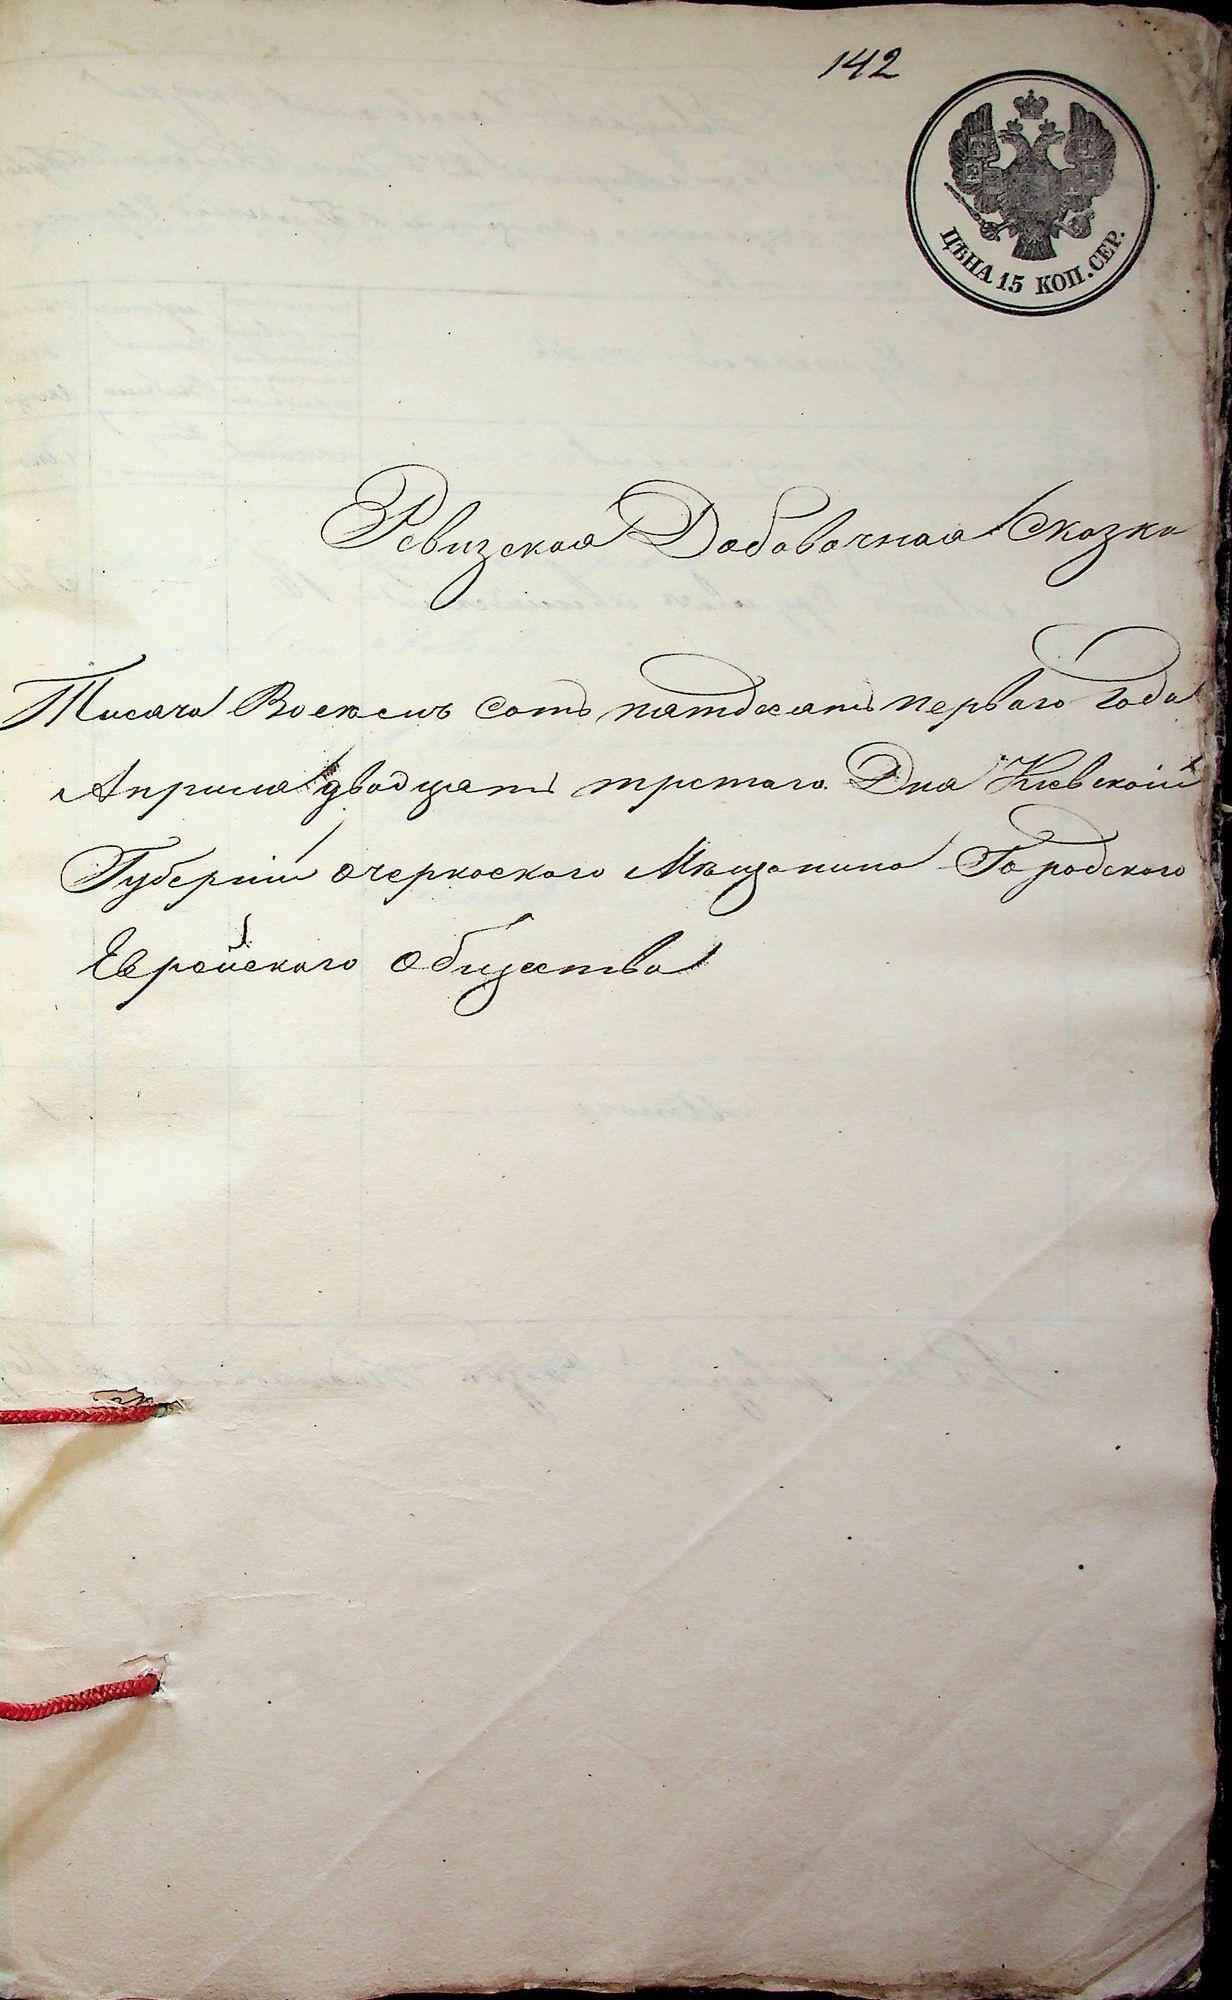 142
ЦѢНА 15 КОП. СЕР.
Ревизская Добавочная Сказка
Тисяча Восемъ сотъ патдесатъ первого года
Априля двадцать третаго Дна Кіевской
Губерніи очеркаского Мещанина Городского
Еврейского общества